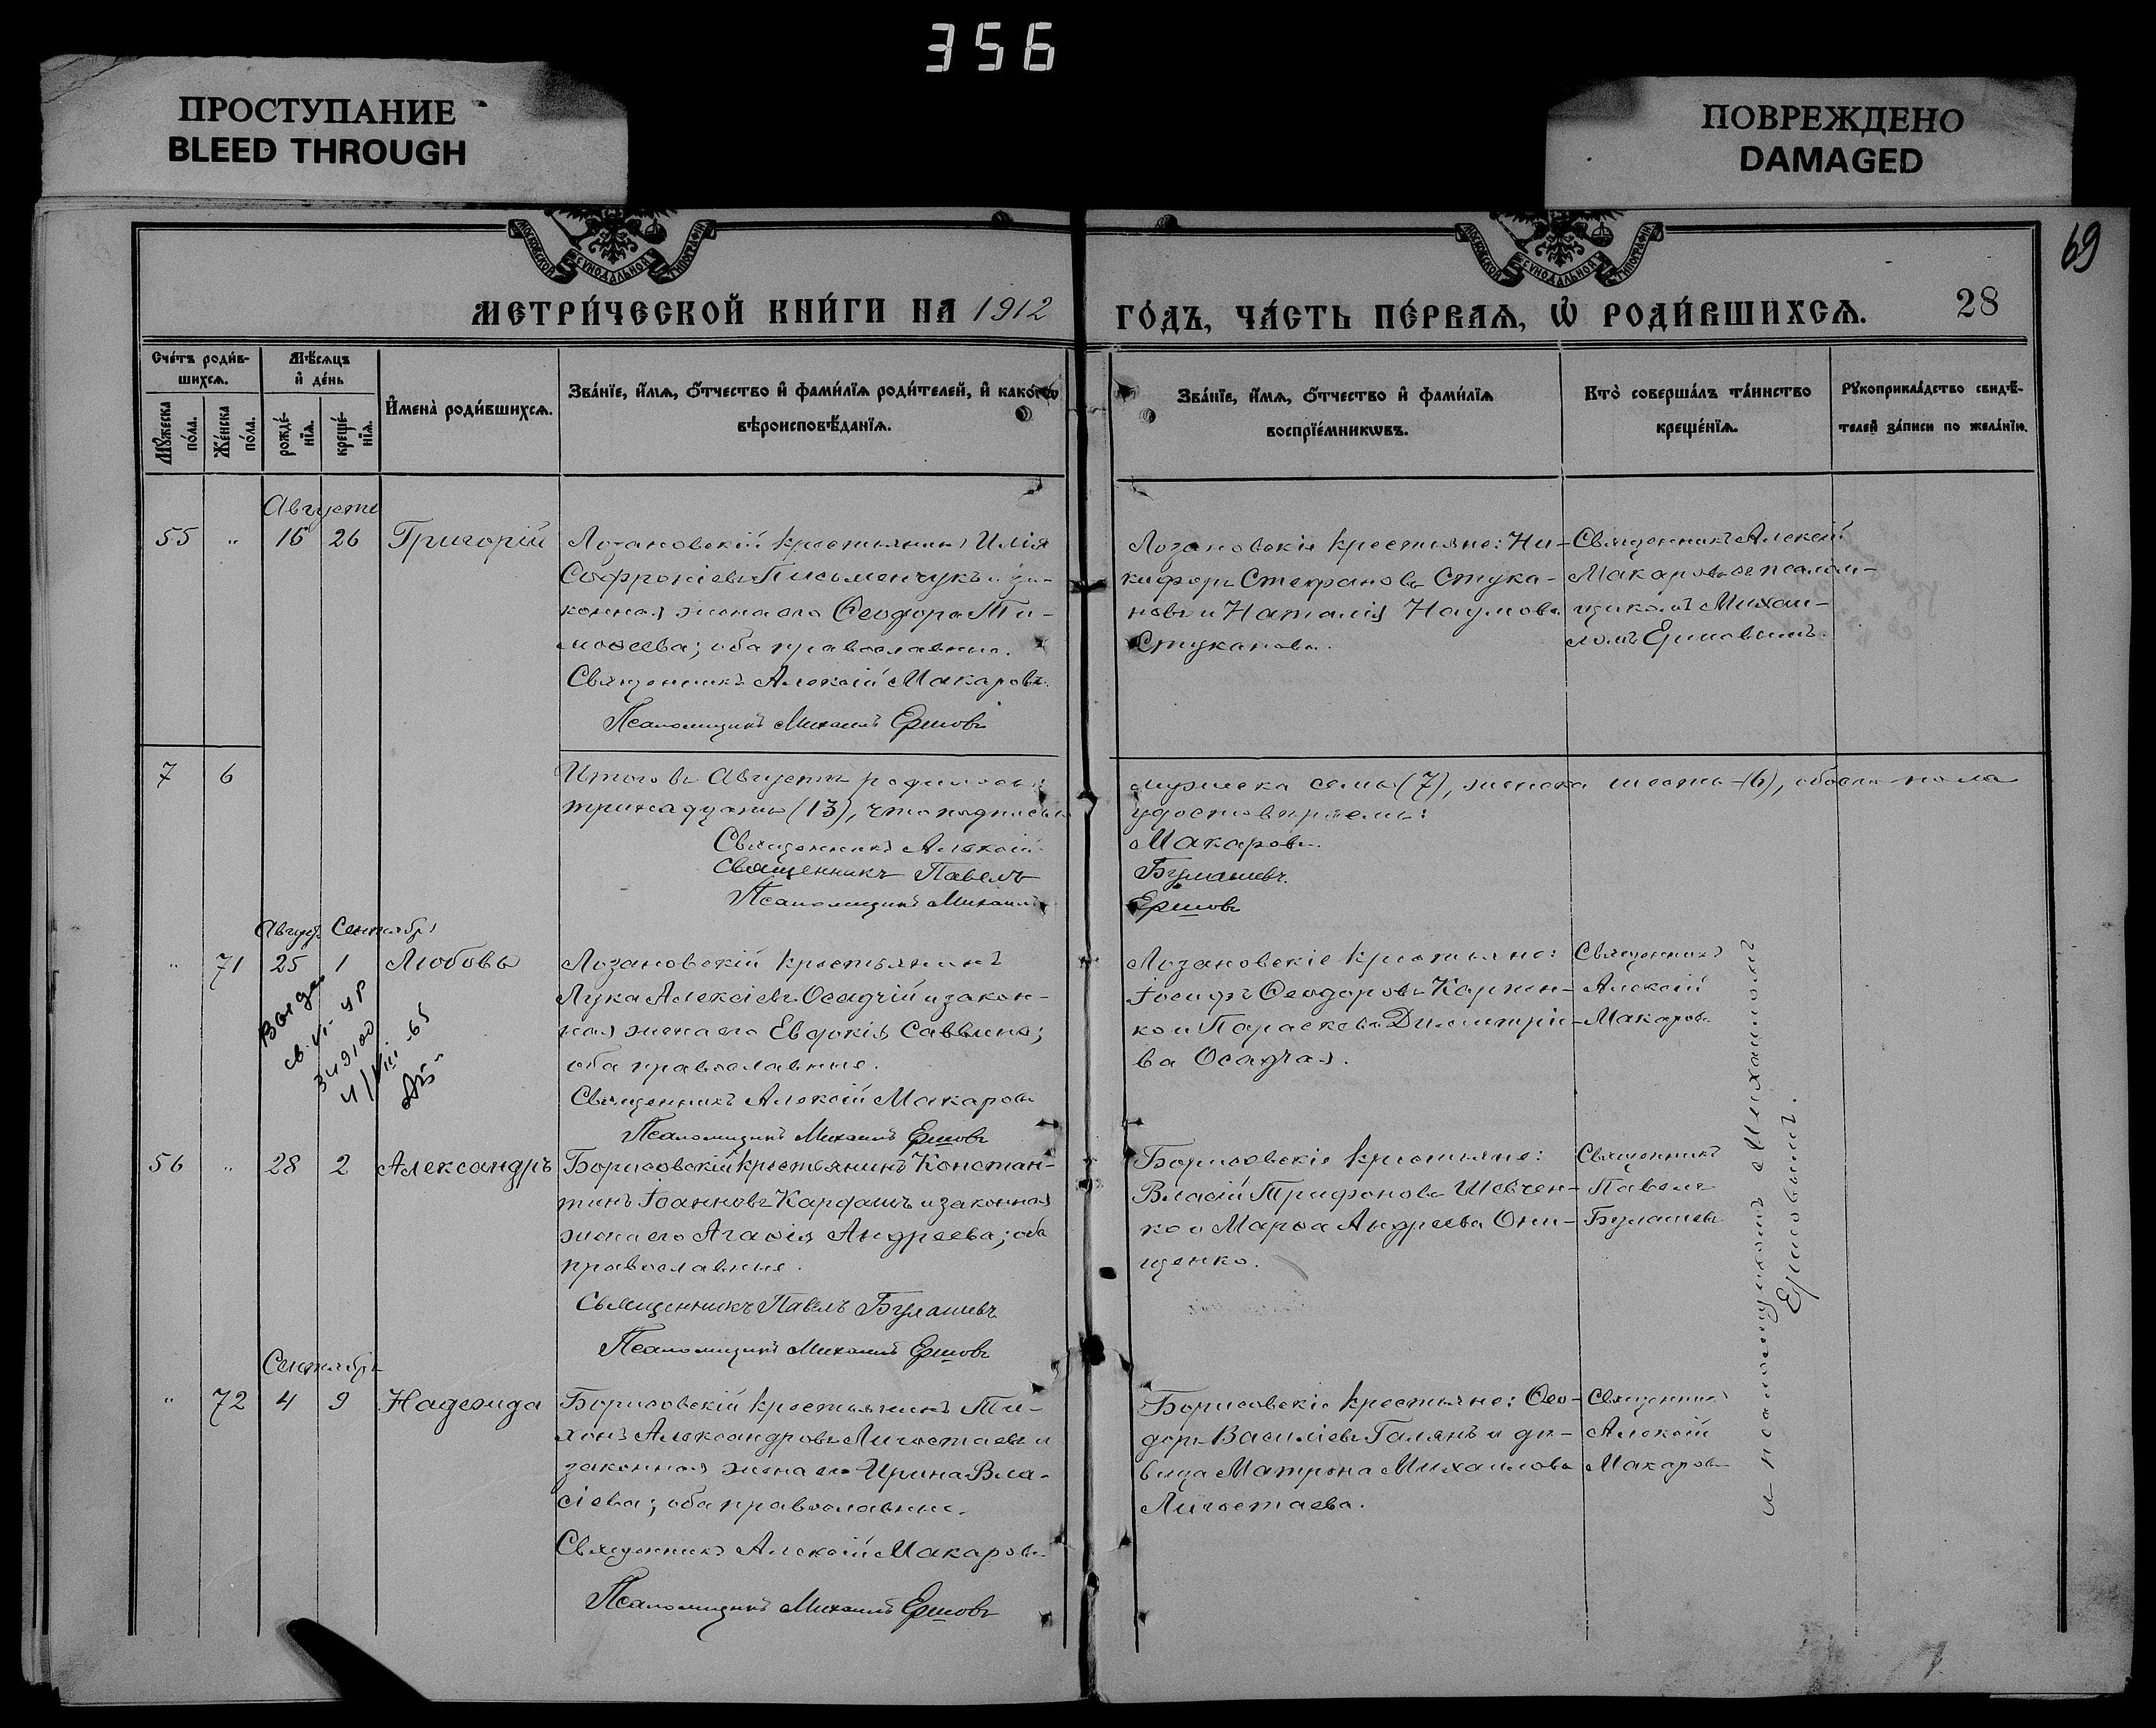 356
ПРОСТУПАНИЕ
BLEED THROUGH
ПОВРЕЖДЕНО
DAMAGED
69
МОСКОВСКОЙ СѴНОДАЛЬНОЙ ТИПОГРАФІИ
МОСКОВСКОЙ СѴНОДАЛЬНОЙ ТИПОГРАФІИ
МЕТРИ́ЧЕСКОЙ КНИ́ГИ НА 1912 ГО́ДЪ, ЧА́СТЬ ПЕ́РВАѦ, Ѡ РОДИ́ВШИХСѦ. 28
Сче́тъ роди́в-
шихсѧ.
Мꙋжеска по́ла.
Же́нска по́ла.
Мѣ́сѧцъ
и҆ де́нь
рожде́-
нїѧ.
креще́-
нїѧ.
И҆мена̀ роди́вшихсѧ.
Зва́нїе, и҆́мѧ, ѻ҆́тчество и҆ фами́лїѧ роди́телей, и҆ како́гѡ
вѣроисповѣ́данїѧ.
Зва́нїе, и҆́мѧ, ѻ҆́тчество и҆ фами́лїѧ
воспрїе́мникѡвъ.
Кто̀ соверша́лъ та́инство
креще́нїѧ.
Рꙋкоприкла́дство свидѣ́-
телей за́писи по жела́нїю.
Августа
55 " 15 26 Григорій
Лозановскій крестьянинъ Илія
Софроніевъ Письменчукъ и за-
конная жена его Ѳеодора Ти-
моѳеева; оба православные.
Священникъ Алексій Макаровъ.
Псаломщикъ Михаилъ Ершовъ
Лозановскіе крестьяне: Ни-
кифоръ Стефановъ Стука-
новъ и Наталія Наумова
Стуканова.
Священникъ Алексій
Макаровъ съ псалом-
щикомъ Михаи-
ломъ Ершовымъ.
7 6
Итого въ Августѣ родилось: мужеска семь (7), женска шесть (6), обоего пола
тринадцать (13), что подписью удостовѣряемъ:
Священникъ Алексій Макаровъ.
Священникъ Павелъ Булашевъ.
Псаломщикъ Михаилъ Ершовъ
Август. Сентября
" 71 25 1 Любовь
Лозановскій крестьянинъ
Лука Алексіевъ Осадчій и закон-
ная жена его Евдокія Саввина;
оба православные.
Священникъ Алексій Макаровъ
Псаломщикъ Михаилъ Ершовъ
Лозановскіе крестьяне:
Іосифъ Ѳеодоровъ Карпен-
ко и Параскева Димитріе-
ва Осадчая.
Священникъ
Алексій
Макаровъ
56 " 28 2 Александръ
Борисовскій крестьянинъ Констан-
тинъ Іоанновъ Кардашъ и законная
жена его Агаѳія Андреева; оба
православные.
Священникъ Павелъ Булашевъ
Псаломщикъ Михаилъ Ершовъ
Борисовскіе крестьяне:
Власій Трифоновъ Шевчен-
ко и Марѳа Андреева Они-
щенко.
Священникъ
Павелъ
Булашевъ
и псаломщикомъ Михаиломъ
Ершовымъ.
Сентябрь
" 72 4 9 Надежда
Борисовскій крестьянинъ Ти-
хонъ Александровъ Лигостаевъ и
законная жена его Ирина Вла-
сіева; оба православные.
Священникъ Алексій Макаровъ
Псаломщикъ Михаилъ Ершовъ
Борисовскіе крестьяне: Ѳео-
доръ Василіевъ Галянъ и дѣ-
вица Матрона Михаилова
Лигостаева.
Священникъ
Алексій
Макаровъ